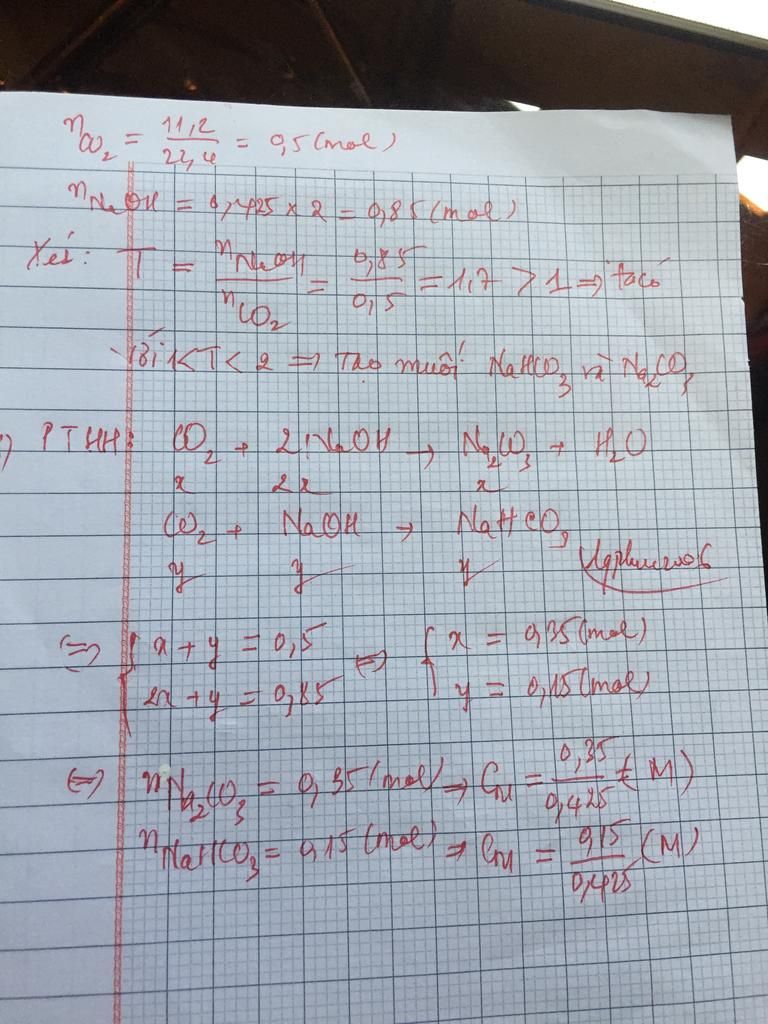 nCO₂ = 11,2/22,4 = 0,5 (mol)
nNaOH = 0,425 × 2 = 0,85 (mol)
Xét: T = nNaOH/nCO₂ = 0,85/0,5 = 1,7 > 1 ⇒ ta có
Với 1 < T < 2 ⇒ Tạo muối NaHCO₃ và Na₂CO₃
PTHH: CO₂ + 2NaOH → Na₂CO₃ + H₂O
x 2x x
CO₂ + NaOH → NaHCO₃
y y y
⇔ { x + y = 0,5 ⇔ { x = 0,35 (mol)
2x + y = 0,85 y = 0,15 (mol)
⇔ nNa₂CO₃ = 0,35 (mol) ⇒ CM = 0,35/0,425 (M)
nNaHCO₃ = 0,15 (mol) ⇒ CM = 0,15/0,425 (M)